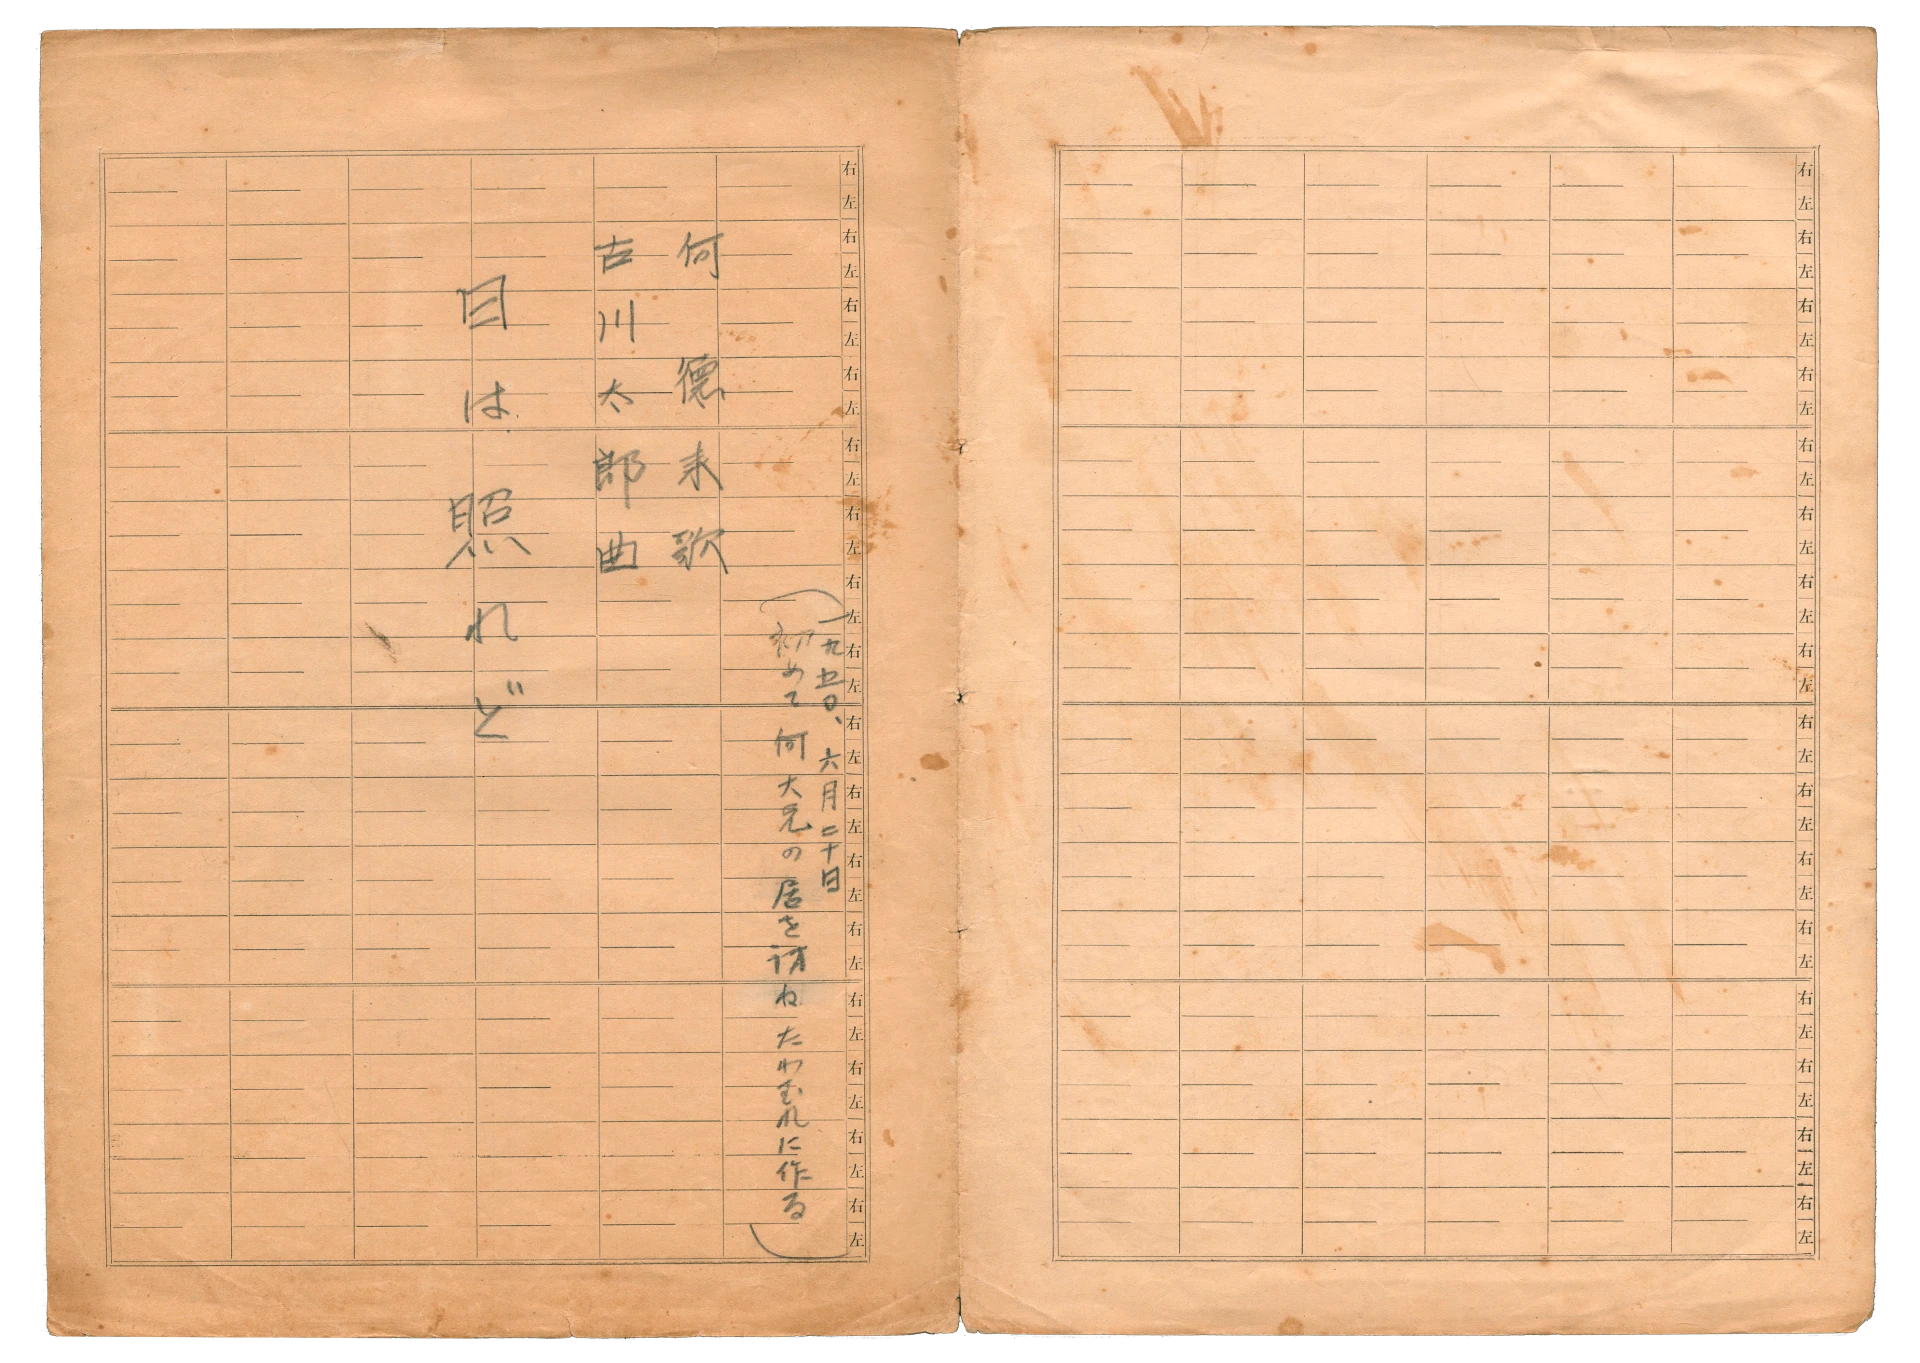 右左右左右左右左右左右左右左右左右左右左右左右左右左右左右左右左
右左右左右左右左右左右左右左右左右左右左右左右左右左右左右左右左
(一九五〇、六月二十日
初めて何大兄の居を訪ねたわむれに作る)
何徳来歌
古川太郎曲
日は照れど